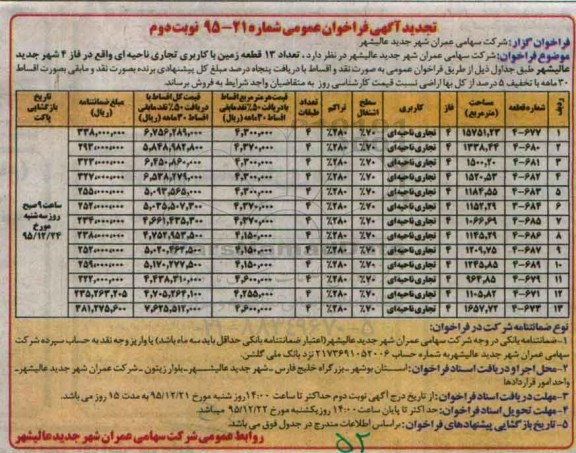 تجدید آگهی فراخوان عمومی شماره ۲۱-۹۵ نوبت دوم
فراخوان گزار: شرکت سهامی عمران شهر جدید عالیشهر
موضوع فراخوان: شرکت سهامی عمران شهر جدید عالیشهر در نظر دارد، تعداد ۱۳ قطعه زمین با کاربری تجاری ناحیه ای واقع در فاز ۴ شهر جدید
عالیشهر طبق جداول ذیل از طریق فراخوان عمومی به صورت نقد و اقساط با دریافت پنجاه درصد مبلغ کل پیشنهادی برنده بصورت نقد و مابقی بصورت اقساط
۳۰ ماهه با تخفیف ۵ درصد از کل بها اراضی نسبت قیمت کارشناسی روز به متقاضیان واجد شرایط به فروش برساند.
ردیف شماره قطعه مساحت (مترمربع) فاز کاربری سطح اشغال تراکم تعداد طبقات قیمت هر متر مربع اقساط با دریافت ۵۰٪ نقد مابقی اقساط ۳۰ ماهه (ریال) قیمت کل اقساط با دریافت ۵۰٪ نقد مابقی اقساط ۳۰ ماهه (ریال) مبلغ ضمانتنامه (ریال) تاریخ بازگشایی پاکت
۱ ۴-۶۷۷ ۴ تجاری ناحیه ای ٪۷۰ ٪۲۸۰ ۴ ۴,۳۰۰,۰۰۰ ۶,۷۵۶,۲۸۹,۰۰۰ ۳۳۸,۰۰۰,۰۰۰
۲ ۴-۶۸۰ ۱۳۳۸,۴۴ ۴ تجاری ناحیه ای ٪۷۰ ٪۲۸۰ ۴ ۴,۳۷۰,۰۰۰ ۵,۸۴۸,۹۸۲,۸۰۰ ۲۹۳,۰۰۰,۰۰۰
۳ ۴-۶۸۱ ۱۵۰۰,۲۰ ۴ تجاری ناحیه ای ٪۷۰ ٪۲۸۰ ۴ ۴,۳۰۰,۰۰۰ ۶,۴۵۰,۸۶۰,۰۰۰ ۳۲۳,۰۰۰,۰۰۰
۴ ۴-۶۸۲ ۱۵۲۰,۵۳ ۴ تجاری ناحیه ای ٪۷۰ ٪۲۸۰ ۴ ۴,۳۰۰,۰۰۰ ۶,۵۳۸,۲۷۹,۰۰۰ ۳۲۷,۰۰۰,۰۰۰
۵ ۴-۶۸۳ ۱۱۸۴,۵۵ ۴ تجاری ناحیه ای ٪۷۰ ٪۲۸۰ ۴ ۴,۳۰۰,۰۰۰ ۵,۰۹۳,۵۶۵,۰۰۰ ۲۵۵,۰۰۰,۰۰۰
۶ ۳-۶۸۴ ۱۱۵۲,۲۹ ۴ تجاری ناحیه ای ٪۷۰ ٪۲۸۰ ۴ ۴,۳۷۰,۰۰۰ ۵,۰۳۵,۵۰۷,۳۰۰ ۲۵۲,۰۰۰,۰۰۰
۷ ۴-۶۸۵ ۱۰۶۶,۶۹ ۴ تجاری ناحیه ای ٪۷۰ ٪۲۸۰ ۴ ۴,۳۷۰,۰۰۰ ۴,۶۶۱,۴۳۵,۳۰۰ ۲۳۴,۰۰۰,۰۰۰
۸ ۴-۶۸۶ ۱۱۴۵,۲۹ ۴ تجاری ناحیه ای ٪۷۰ ٪۲۸۰ ۴ ۴,۱۵۰,۰۰۰ ۴,۷۵۲,۹۵۳,۵۰۰ ۲۳۸,۰۰۰,۰۰۰
۹ ۴-۶۸۷ ۱۲۰۹,۷۵ ۴ تجاری ناحیه ای ٪۷۰ ٪۲۸۰ ۴ ۴,۱۵۰,۰۰۰ ۵,۰۲۰,۴۶۲,۵۰۰ ۲۵۲,۰۰۰,۰۰۰
۱۰ ۴-۶۸۹ ۱۲۴۵,۸۵ ۴ تجاری ناحیه ای ٪۷۰ ٪۲۸۰ ۴ ۴,۱۵۰,۰۰۰ ۵,۱۷۰,۲۷۷,۵۰۰ ۲۵۹,۰۰۰,۰۰۰
۱۱ ۴-۶۷۹ ۹۶۴,۸۵ ۴ تجاری ناحیه ای ٪۷۰ ٪۲۸۰ ۴ ۴,۶۰۰,۰۰۰ ۴,۴۳۸,۳۱۰,۰۰۰ ۲۲۲,۰۰۰,۰۰۰
۱۲ ۴-۶۷۱ ۱۱۰۵,۸۲ ۴ تجاری ناحیه ای ٪۷۰ ٪۲۸۰ ۴ ۴,۲۵۵,۰۰۰ ۴,۷۰۵,۲۶۴,۱۰۰ ۲۳۵,۲۶۳,۲۰۵
۱۳ ۴-۶۷۳ ۱۶۵۷,۷۲ ۴ تجاری ناحیه ای ٪۷۰ ٪۲۸۰ ۴ ۴,۶۰۰,۰۰۰ ۷,۶۲۵,۵۱۲,۰۰۰ ۳۸۱,۲۷۵,۶۰۰
ساعت ۹ صبح
روز سه شنبه
مورخ
۹۵/۱۲/۲۴
نوع ضمانتنامه شرکت در فراخوان:
۱- ضمانتنامه بانکی در وجه شرکت سهامی عمران شهر جدید عالیشهر (اعتبار ضمانتنامه بانکی حداقل باید سه ماه باشد) یا واریز وجه نقد به حساب سپرده شرکت
سهامی عمران شهر جدید عالیشهر به شماره حساب ۲۱۷۳۶۹۱۰۵۲۰۰۶ نزد بانک ملی گلشن.
۲- محل اجرا و دریافت اسناد فراخوان: استان بوشهر - بزرگراه خلیج فارس - شهر جدید عالیشهر - بلوار زیتون - شرکت عمران شهر جدید عالیشهر -
واحد امور قراردادها
۳- مهلت دریافت اسناد فراخوان: از تاریخ درج آگهی نوبت دوم حداکثر تا ساعت ۱۴:۰۰ روز شنبه مورخ ۹۵/۱۲/۲۱ به مدت ۱۵ روز می باشد.
۴- مهلت تحویل اسناد فراخوان: حداکثر تا پایان ساعت ۱۴:۰۰ روز یکشنبه مورخ ۹۵/۱۲/۲۲ میباشد.
۵- تاریخ بازگشایی پیشنهادهای فراخوان: براساس اطلاعات مندرج در جدول فوق می باشد.
روابط عمومی شرکت سهامی عمران شهر جدید عالیشهر
۵۲